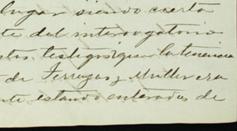 lugar siendo cierto
te del interrogatorio
testigos que la tenencia
de Ferreyra y Muller era
te estando enterados de